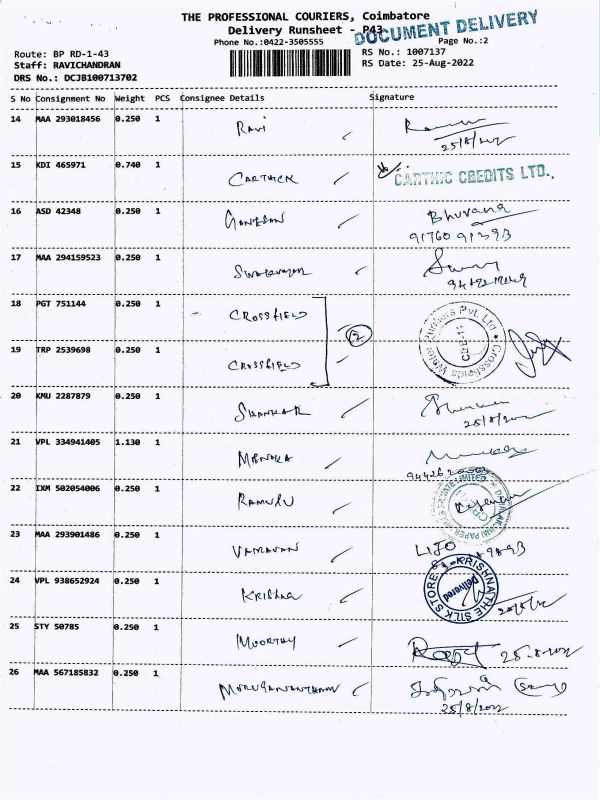 THE PROFESSIONAL COURIERS, Coimbatore
Delivery Runsheet - P43
DOCUMENT DELIVERY
Phone No.:0422-3505555
Page No.:2
Route: BP RD-1-43
RS No.: 1007137
Staff: RAVICHANDRAN
RS Date: 25-Aug-2022
DRS No.: DCJB100713702
S No Consignment No Weight PCS Consignee Details Signature
14 MAA 293018456 0.250 1 Ravi
25/8/2022
15 KDI 465971 0.740 1 CARTHICK CARTHIC CREDITS LTD.,
16 ASD 42348 0.250 1 Ganesan Bhuvana
91760 91393
17 MAA 294159523 0.250 1
18 PGT 751144 0.250 1 CROSSFIELD
2
Crossfields Water Purifiers Pvt. Ltd.
CBE-11
19 TRP 2539698 0.250 1 CROSSFIELD
20 KMU 2287879 0.250 1 SHANKAR
25/8/2022
21 VPL 334941405 1.130 1 MENAKA
22 IXM 502054006 0.250 1 RAMUKU
23 MAA 293901486 0.250 1 VAIRAVAN LIJO
9893
24 VPL 938652924 0.250 1 Krishna
SRI KRISHNA THE SILK STORES
Delivered
25/8/22
25 STY 50785 0.250 1 MOORTHY 25-8-2022
26 MAA 567185832 0.250 1 MURUGANANTHAM
25/8/2022